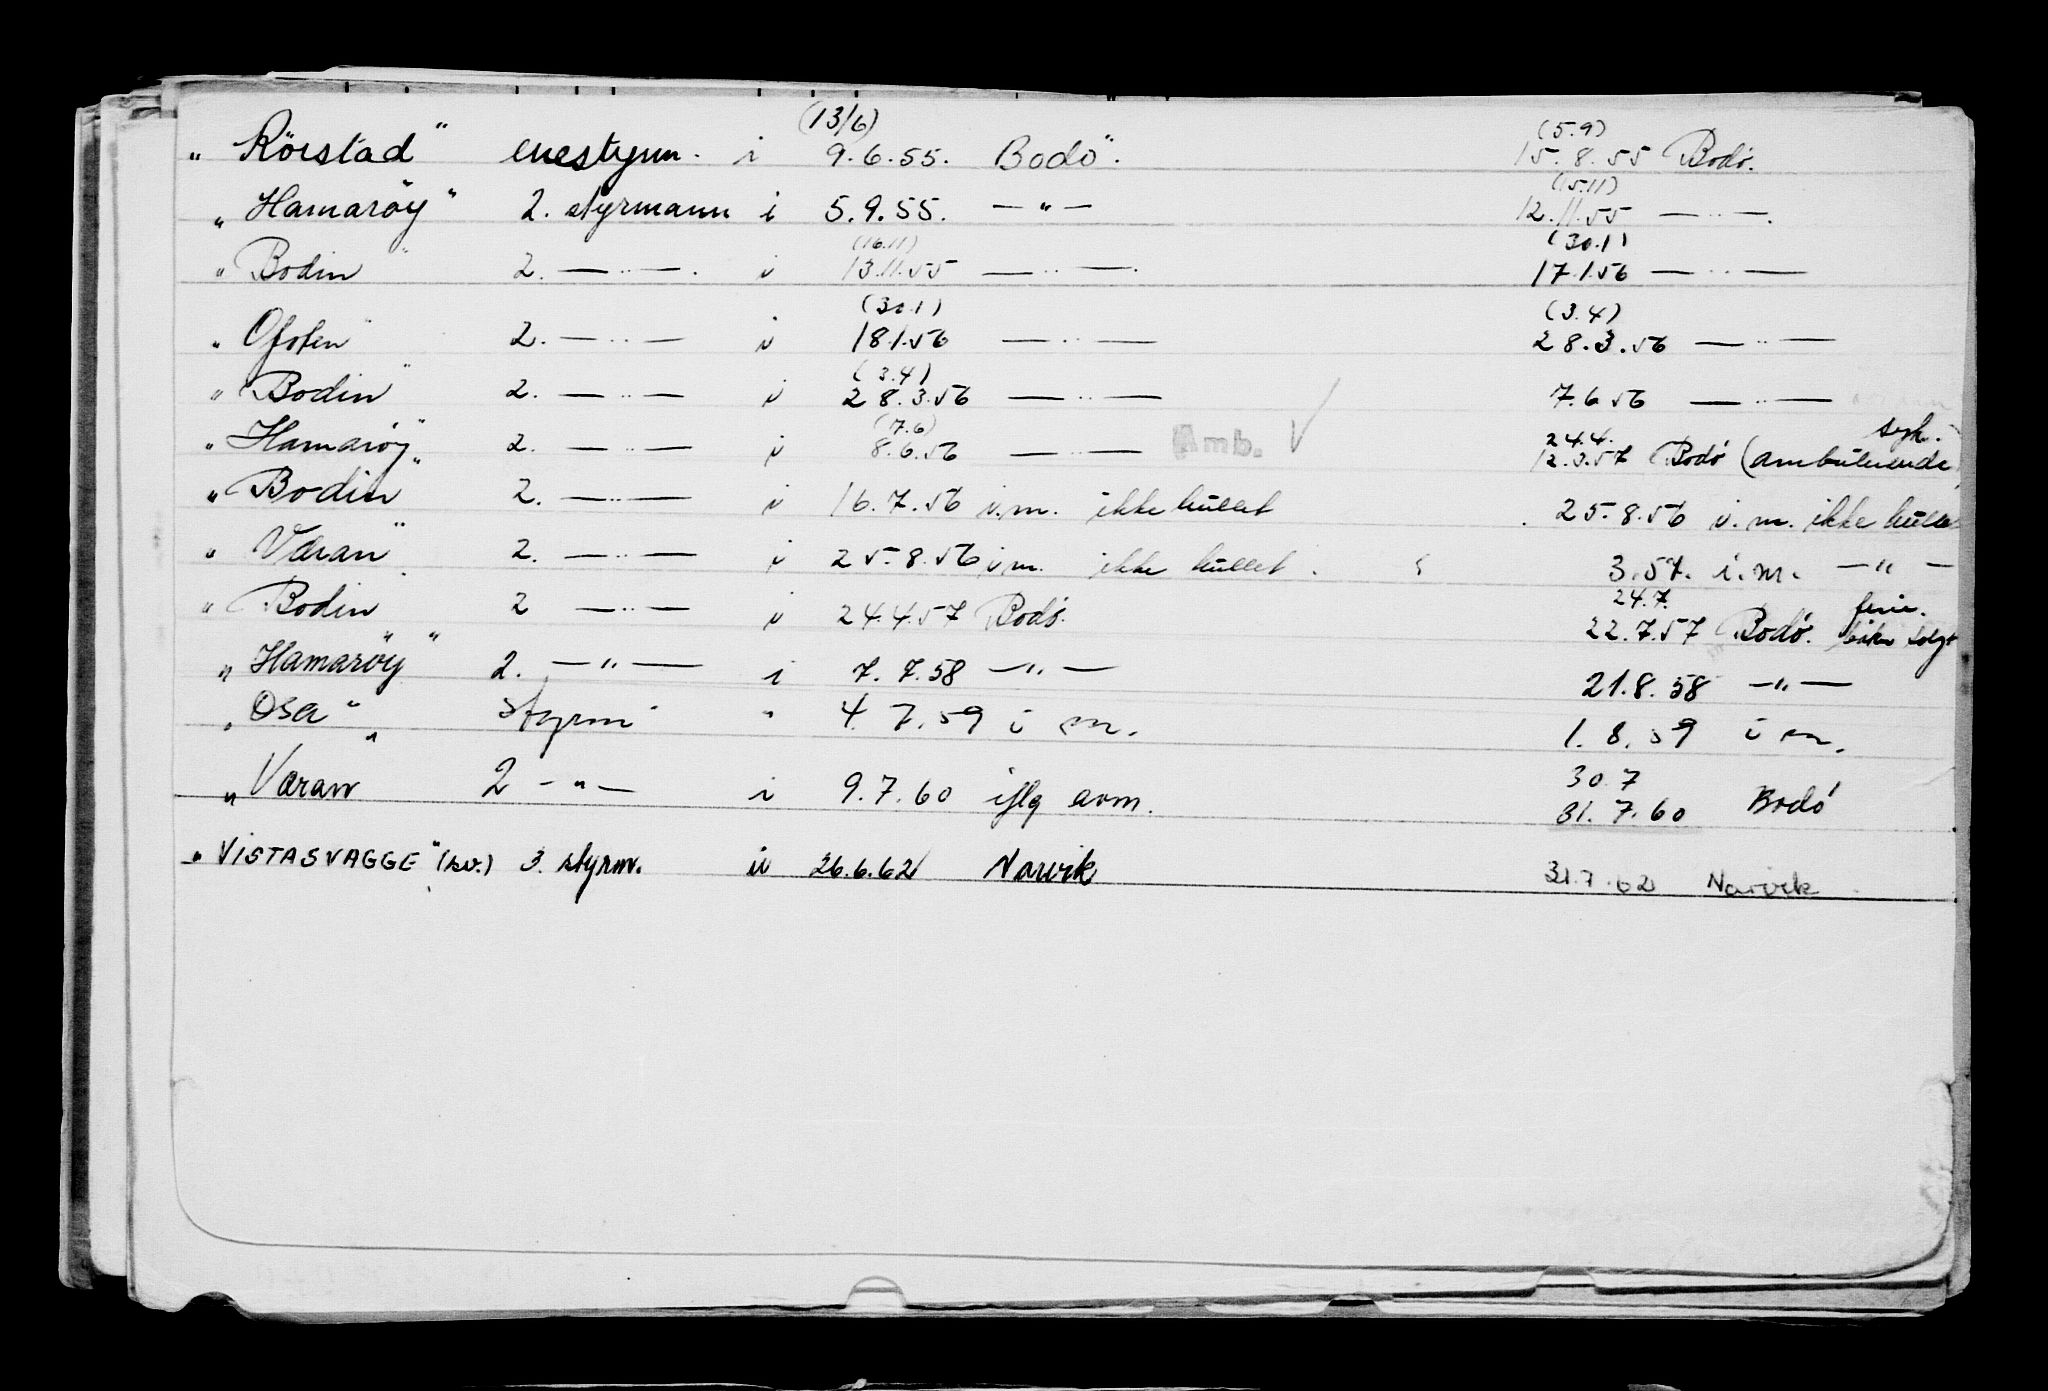 (13/6) (5.9)
„ Rörstad" enestyrm. i 9.6.55. Bodö. 15.8.55 Bodö.
(15.11)
„ Hamaröy" 2. styrmann i 5.9.55. — " — 12.11.55 — " —.
(16.11) (30.1)
„ Bodin" 2. — " —. i 13.11.55 — " —. 17.1.56 — " —
(30.1) (3.4)
„ Ofoten" 2. — " — i 18.1.56 — " — 28.3.56 — " —
(3.4)
„ Bodin" 2. — " — i 28.3.56 — " — 7.6.56 — " —
(7.6) 24.4. syk.
„ Hamaröy" 2. — " — i 8.6.56 — " — Amb. V 12.3.57 Bodö (ambulerende)
„ Bodin 2. — " — i 16.7.56 i.m. ikke hullet 25.8.56 i.m. ikke hullet
„ Væran" 2. — " — i 25.8.56 i.m. ikke hullet. 3.57. i.m. — " —
24.7. ferie.
„ Bodin 2 — " — i 24.4.57 Bodö. 22.7.57 Bodö. solgt
„ Hamaröy" 2. — " — i 7.7.58 — " — 21.8.58 — " —
„ Osa" Styrm " 4.7.59 i m. 1.8.59 i m.
30.7
„ Væran" 2 — " — i 9.7.60 iflg avm. 31.7.60 Bodö
„ VISTASVAGGE" (sv.) 3. styrm. i 26.6.62 Narvik 31.7.62 Narvik